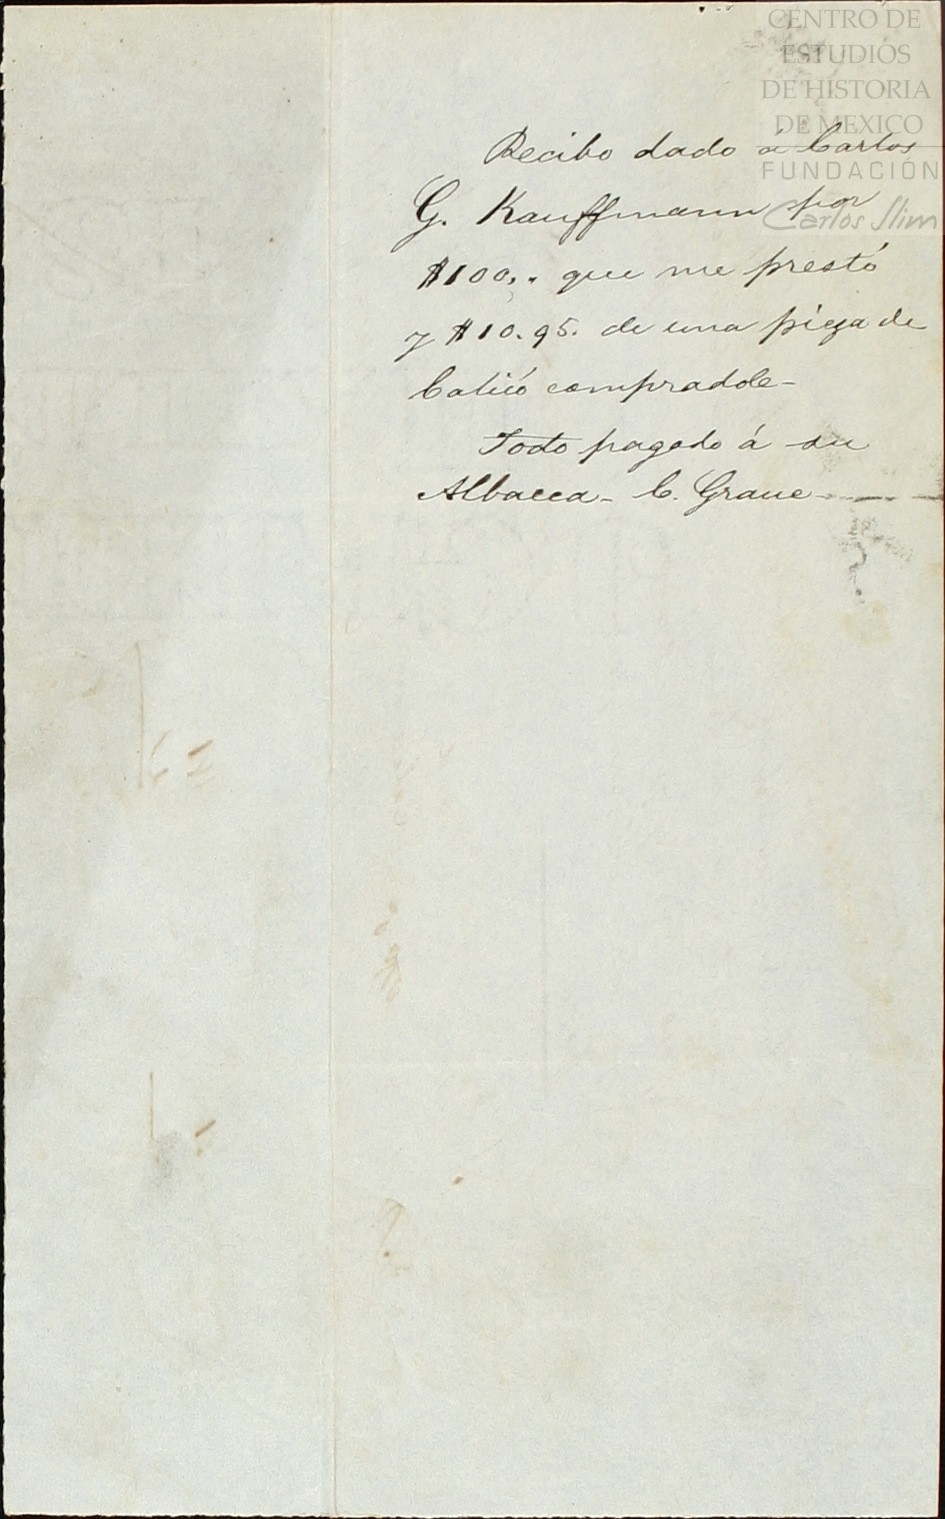 CENTRO DE
ESTUDIOS
DE HISTORIA
DE MEXICO
FUNDACIÓN
Carlos Slim
Recibo dado á Carlos
G. Kauffmann por
$100,. que me prestó
y $10.95. de una pieza de
Calicó compradole-
Todo pagado á su
Albacea- C. Graue-